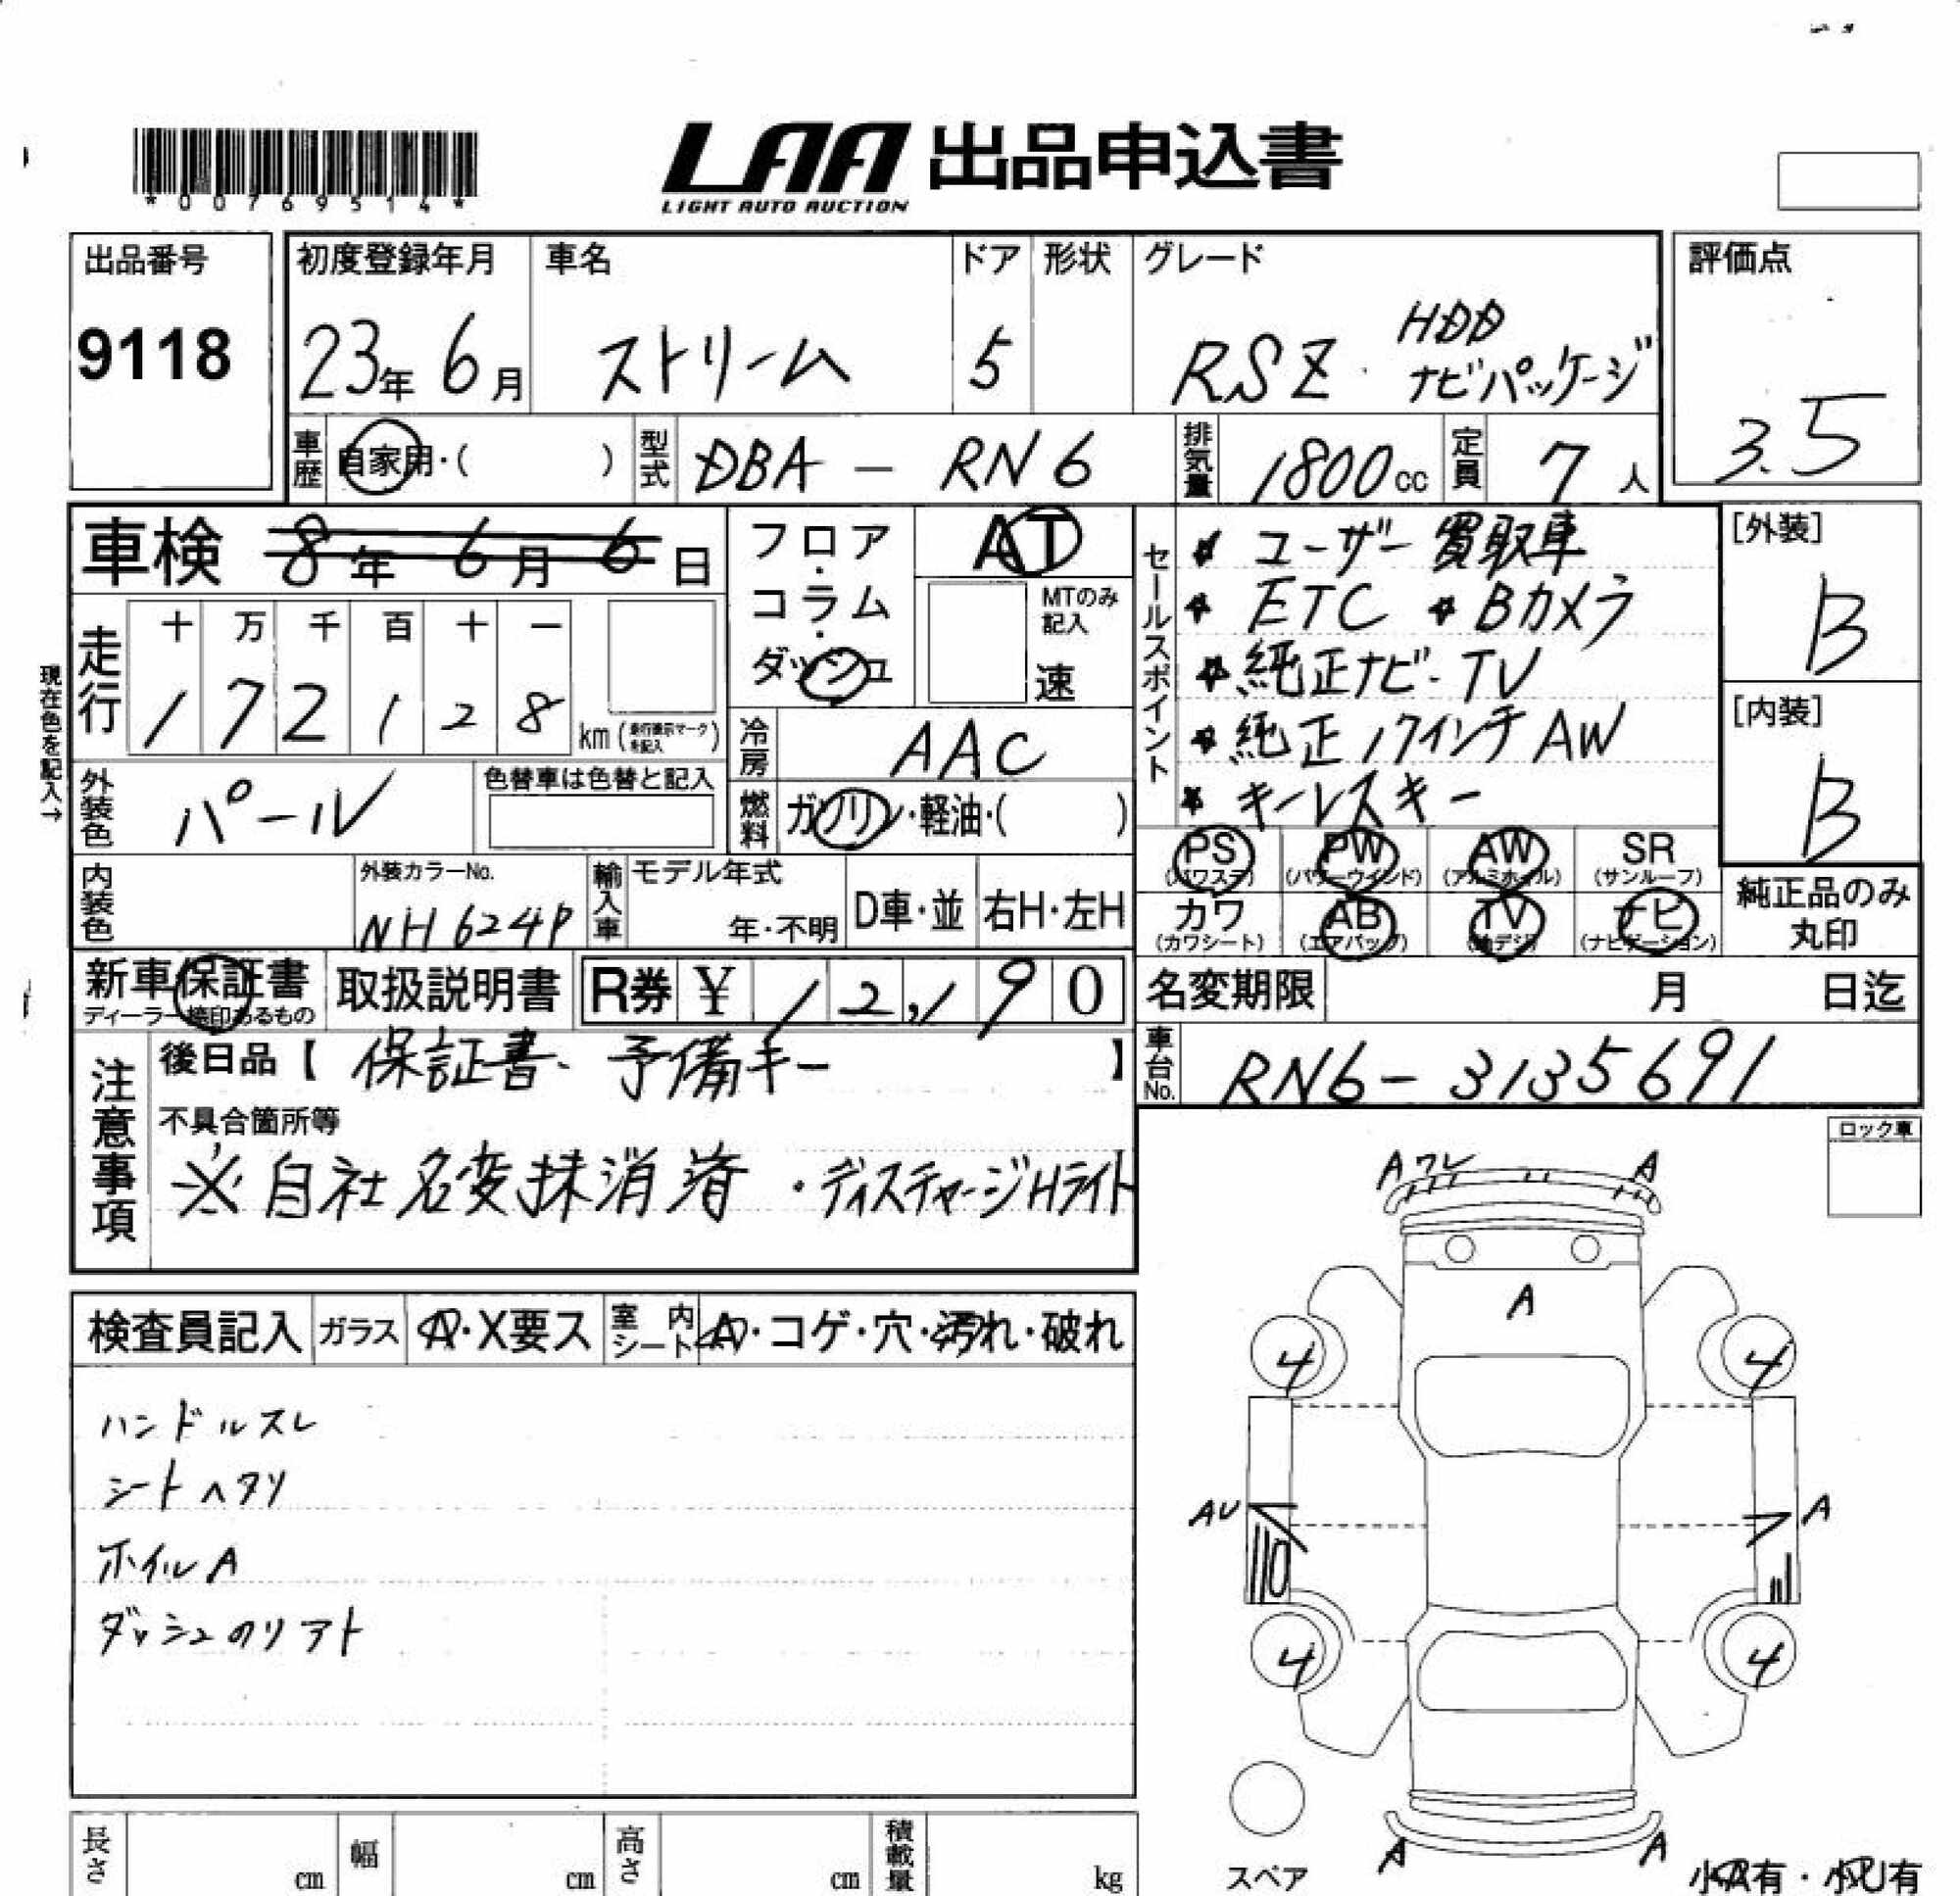 *00769514*
LAA 出品申込書
LIGHT AUTO AUCTION
出品番号
9118
初度登録年月
23年 6月
車名
ストリーム
ドア
5
形状
グレード
RSZ HDD
ナビパッケージ
評価点
3.5
車歴 自家用・( )
型式 DBA - RN6
排気量 1800cc
定員 7人
車検 8年 6月 6日
フロア・コラム・ダッシュ
AT
MTのみ記入
速
現在色を記入→
走行
十 万 千 百 十 一
1 7 2 1 2 8
km (走行表示マークを記入)
冷房 AAC
燃料 ガソリン・軽油・( )
外装色 パール
色替車は色替と記入
内装色
外装カラーNo.
NH624P
輸入車
モデル年式
年・不明
D車・並
右H・左H
セールスポイント
★ ユーザー買取車
★ ETC ★ Bカメラ
★ 純正ナビ・TV
★ 純正17インチAW
★ キーレスキー
[外装]
B
[内装]
B
PS (パワステ)
PW (パワーウインド)
AW (アルミホイル)
SR (サンルーフ)
カワ (カワシート)
AB (エアバッグ)
TV (地デジ)
ナビ (ナビゲーション)
純正品のみ丸印
新車保証書
ディーラー捺印あるもの
取扱説明書
R券 ¥ 12,190
名変期限 月 日迄
車台No. RN6-3135691
注意事項
後日品【 保証書・予備キー 】
不具合箇所等
※自社名変抹消済 ・ディスチャージHライト
ロック車
検査員記入
ガラス A・X要ス
室内シート A・コゲ・穴・汚れ・破れ
ハンドルスレ
シートヘタリ
ホイルA
ダッシュノリアト
A ワレ A
A
4 4
AU A
4 4
A A
スペア
小A有・小U有
長さ cm
幅 cm
高さ cm
積載量 kg